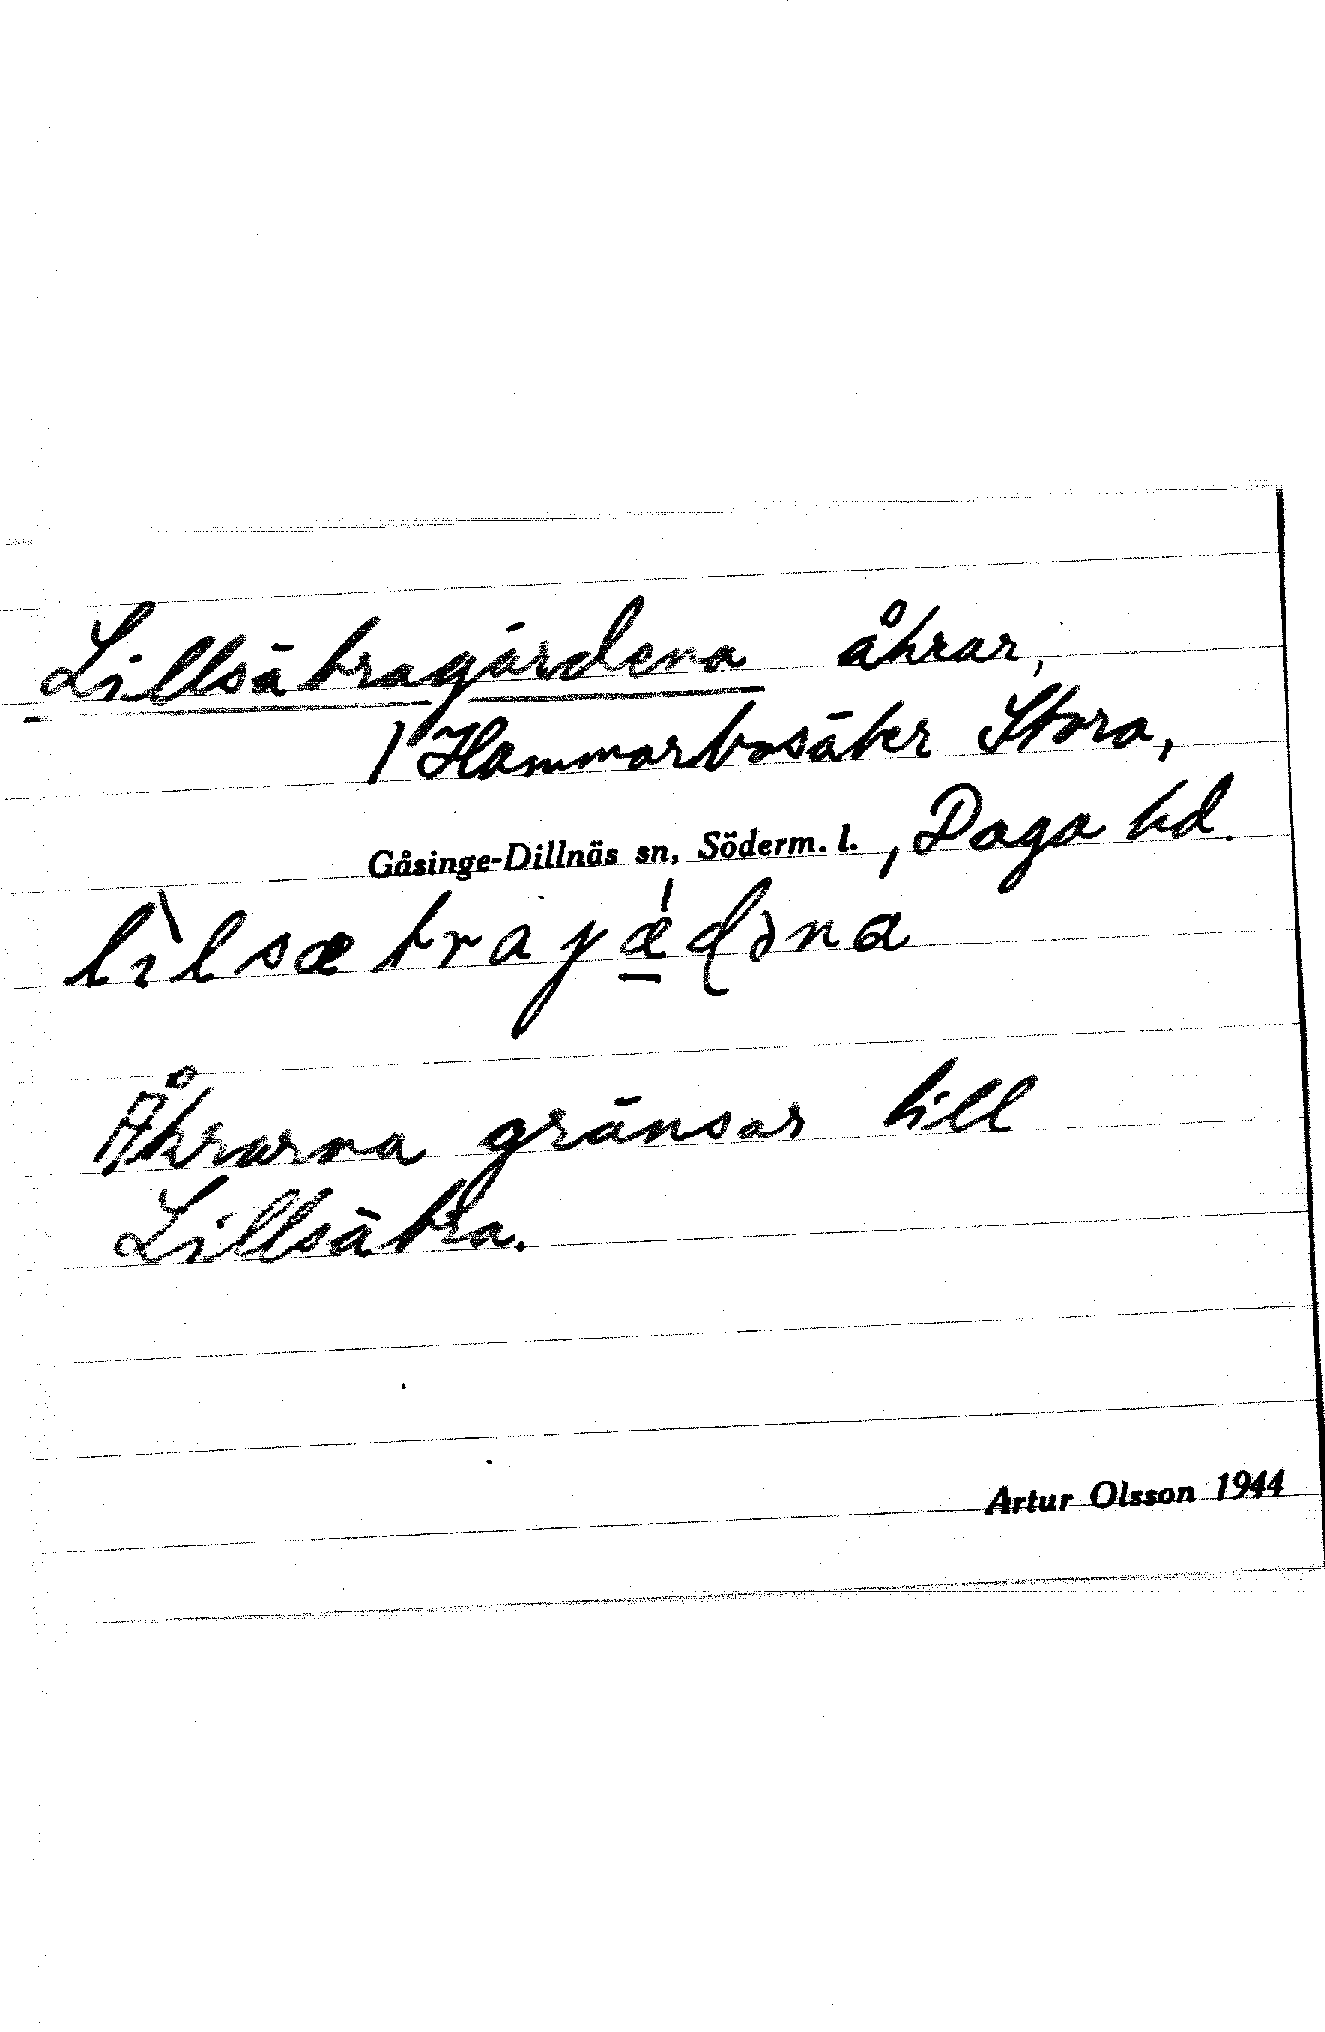 Lillsätragärdena åkrar,
1 Hammarbosäter Stora,
Gåsinge-Dillnäs sn, Söderm. l., Daga hd.
lìlsætrajǽ̱dəna
Åkrarna gränsar till
Lillsätra.
Artur Olsson 1944